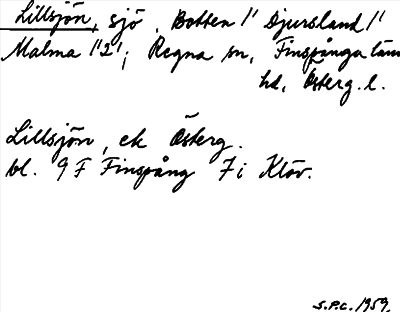 Lillsjön, sjö. Botten 1' Djursland 1'
Malma 1'2'; Regna sn, Finspånga läns
hd, Österg. l.
Lillsjön, ek Österg.
bl. 9 F Finspång 7 i Klöv.
S.P.C. 1959.